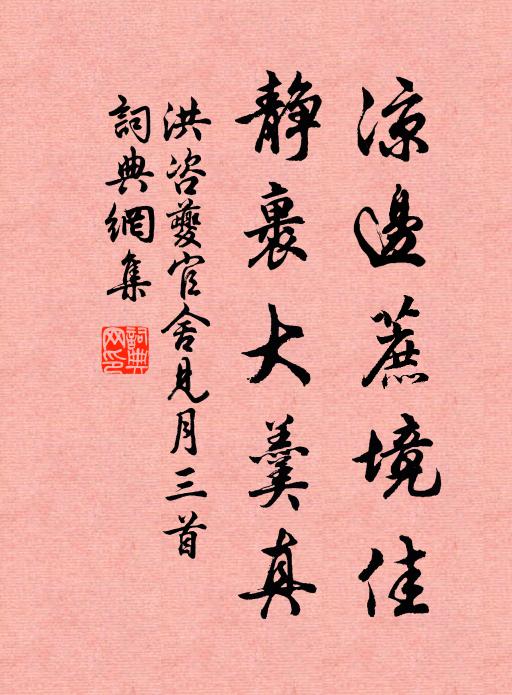 凉邊蔗境佳
静裹大羹真
洪咨夔官舍見月三首
詞典網集
詞典網印